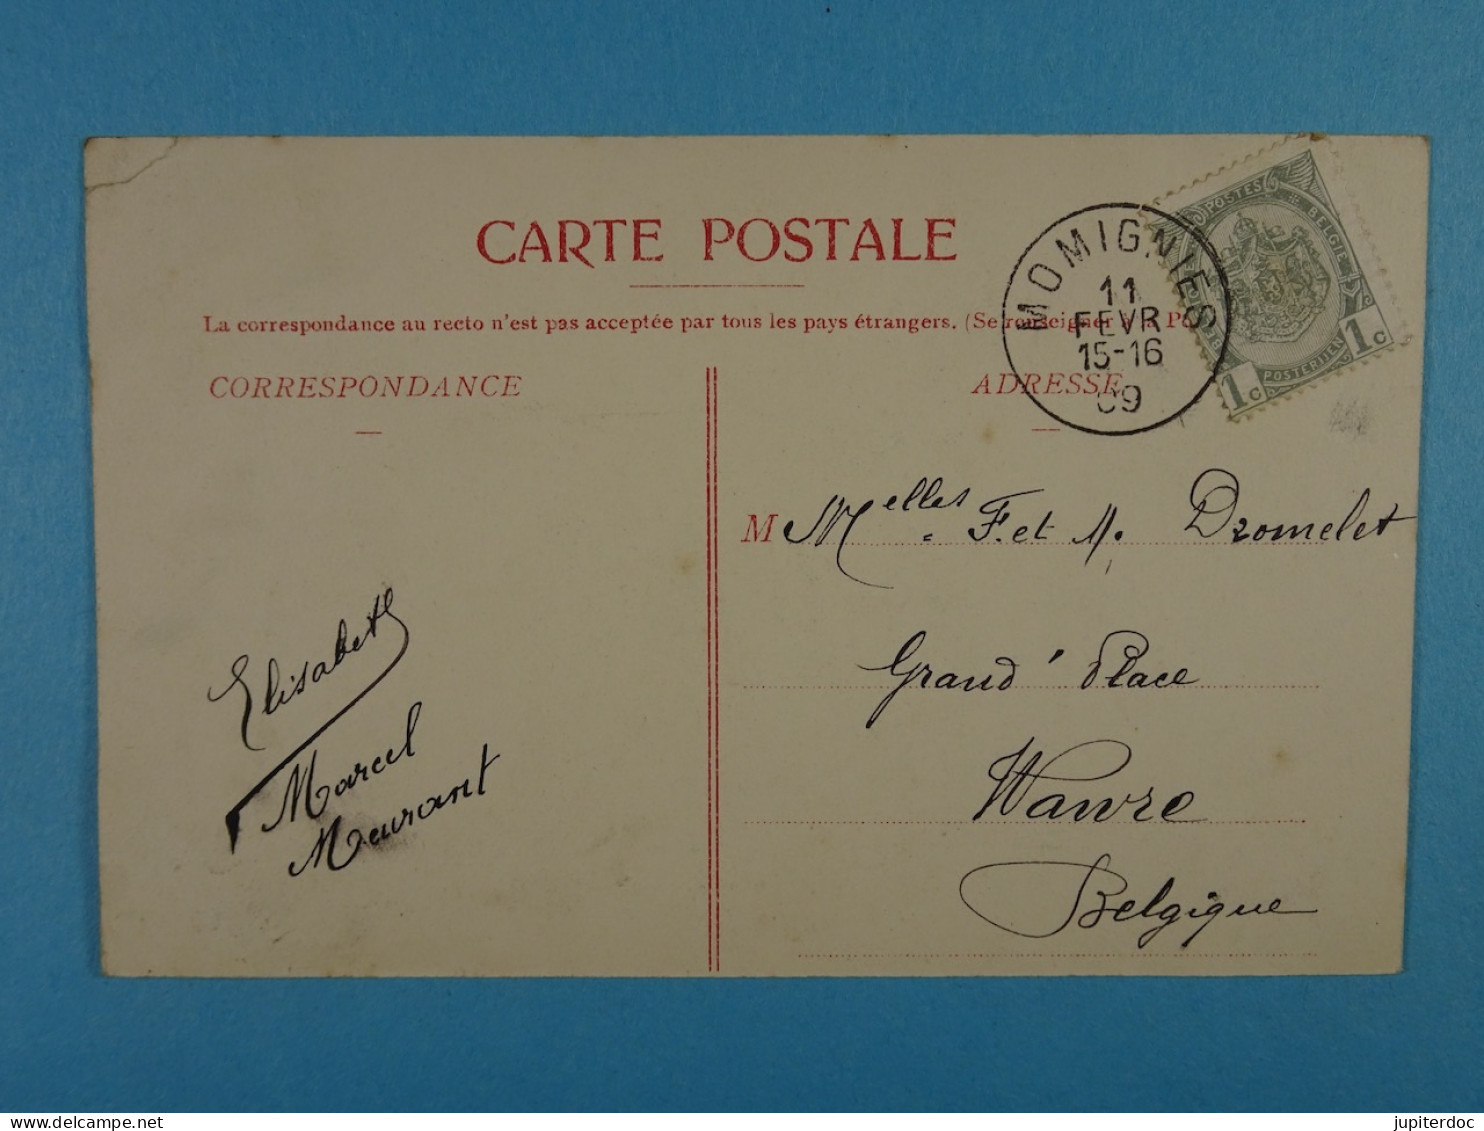 CARTE POSTALE
La correspondance au recto n'est pas acceptée par tous les pays étrangers. (Se renseigner à la Po
CORRESPONDANCE
ADRESSE
MOMIGNIES
11
FEVR
15-16
09
POSTES
BELGIE
1c
POSTERIJEN
1c
M Melles F. et M. Dromelet
Grand' Place
Wavre
Belgique
Elisabeth
Marcel
Meurant
Delcampe.net
jupiterdoc